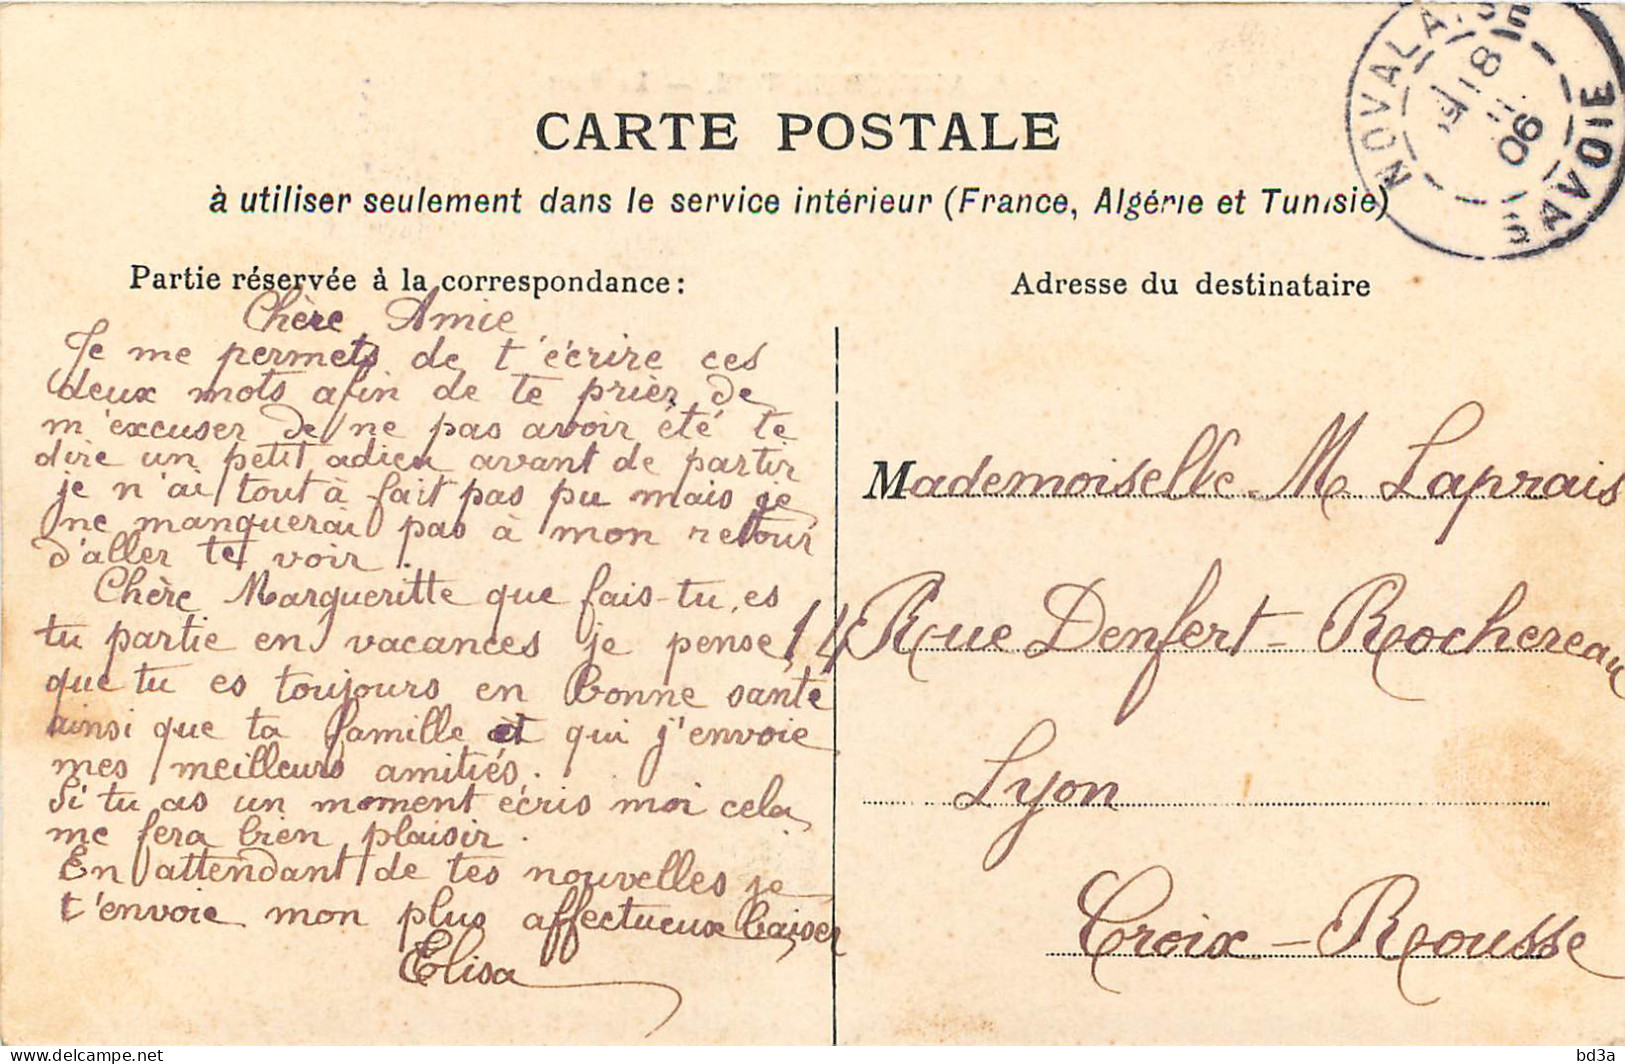 CARTE POSTALE
à utiliser seulement dans le service intérieur (France, Algérie et Tunisie)
NOVALAISE
8
06
SAVOIE
Partie réservée à la correspondance :
Chère Amie
Je me permets de t'écrire ces
deux mots afin de te prier de
m'excuser de ne pas avoir été te
dire un petit adieu avant de partir
je n'ai tout à fait pas pu mais je
ne manquerai pas à mon retour
d'aller te voir.
Chère Margueritte que fais-tu, es
tu partie en vacances je pense
que tu es toujours en bonne santé
ainsi que ta famille et qui j'envoie
mes meilleurs amitiés.
Si tu as un moment écris moi cela
me fera bien plaisir.
En attendant de tes nouvelles je
t'envoie mon plus affectueux baiser
Elisa
Adresse du destinataire
Mademoiselle M Laprais
14 Rue Denfert-Rochereau
Lyon
Croix-Rousse
delcampe.net
bd3a